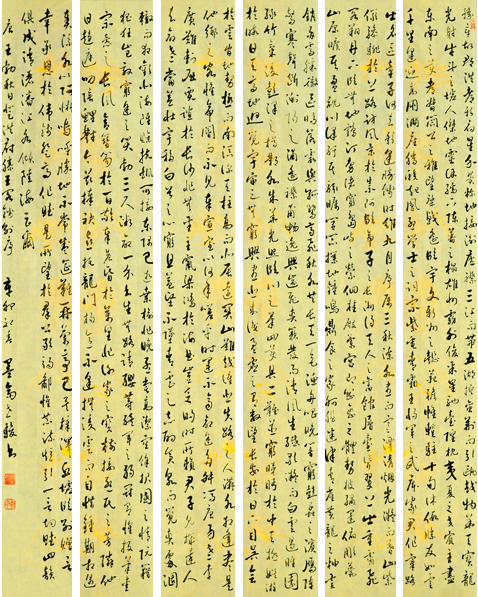 豫章故郡洪都新府星分翼軫地接衡廬襟三江而帶五湖控蠻荊而引甌越物華天寶龍
光射牛斗之墟人傑地靈徐孺下陳蕃之榻雄州霧列俊采星馳臺隍枕夷夏之交賓主盡
東南之美都督閻公之雅望棨戟遙臨宇文新州之懿範襜帷暫駐十旬休假勝友如雲
千里逢迎高朋滿座騰蛟起鳳孟學士之詞宗紫電青霜王將軍之武庫家君作宰路
出名區童子何知躬逢勝餞時維九月序屬三秋潦水盡而寒潭清煙光凝而暮山紫
儼驂騑於上路訪風景於崇阿臨帝子之長洲得天人之舊館層臺聳翠上出重霄飛
閣翔丹下臨無地鶴汀鳧渚窮島嶼之縈迴桂殿蘭宮即岡巒之體勢披繡闥俯雕甍
山原曠其盈視川澤紆其駭矚閭閻撲地鐘鳴鼎食之家舸艦迷津青雀黃龍之舳雲
銷雨霽彩徹區明落霞與孤鶩齊飛秋水共長天一色漁舟唱晚響窮彭蠡之濱雁陣
驚寒聲斷衡陽之浦遙襟甫暢逸興遄飛爽籟發而清風生纖歌凝而白雲遏睢園
綠竹氣凌彭澤之樽鄴水朱華光照臨川之筆四美具二難並窮睇眄於中天極娛遊
於暇日天高地迥覺宇宙之無窮興盡悲來識盈虛之有數望長安於日下目吳會
於雲間地勢極而南溟深天柱高而北辰遠關山難越誰悲失路之人萍水相逢盡是
他鄉之客懷帝閽而不見奉宣室以何年嗟乎時運不齊命途多舛馮唐易老李
廣難封屈賈誼於長沙非無聖主竄梁鴻於海曲豈乏明時所賴君子見機達人
知命老當益壯寧移白首之心窮且益堅不墜青雲之志酌貪泉而覺爽處涸
轍而相歡北海雖賒扶搖可接東隅已逝桑榆非晚孟嘗高潔空餘報國之情阮籍
猖狂豈效窮途之哭勃三尺微命一介書生無路請纓等終軍之弱冠有懷投筆慕
宗愨之長風舍簪笏於百齡奉晨昏於萬里非謝家之寶樹接孟氏之芳鄰他
日趨庭叨陪鯉對今茲捧袂喜托龍門楊意不逢撫凌雲而自惜鍾期相遇
奏流水以何慚嗚呼勝地不常盛筵難再蘭亭已矣梓澤丘墟臨別贈言
幸承恩於偉餞登高作賦是所望於群公敢竭鄙懷恭疏短引一言均賦四韻
俱成請灑潘江各傾陸海云爾
唐王勃秋日登洪府滕王閣餞別序 辛卯初春 書